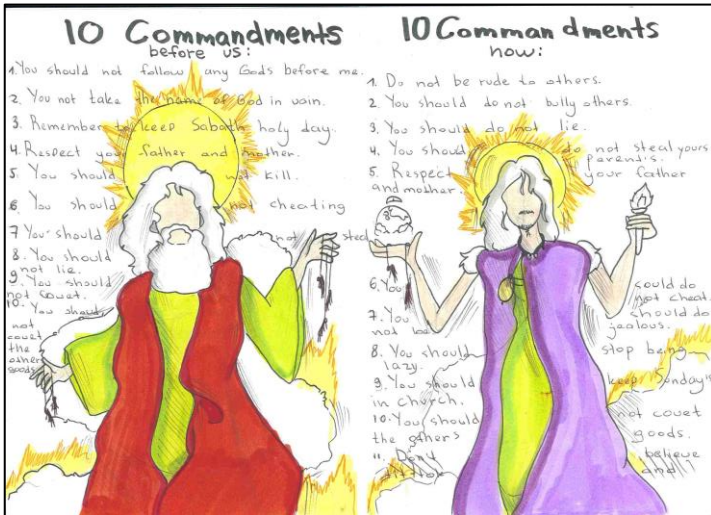 10 Commandments
before us:
1. You should not follow any Gods before me.
2. You not take the name of God in vain.
3. Remember to keep Sabath holy day.
4. Respect your father and mother.
5. You should not kill.
6. You should not cheating
7 You should not steal
8. You should
not lie.
9. You should
not covet.
10. You should
not
covet
the
others
goods
10 Commandments
now:
1. Do not be rude to others.
2. You should do not bully others.
3. You should do not lie.
4. You should do not steal yours
parents.
5. Respect your father
and mother.
6. You sould do
not cheat.
7. You should do
not be jealous.
8. You should stop being
lazy.
9. You should keep Sunday"
in church.
10. You should not covet
the other's goods.
11. Don't believe
and